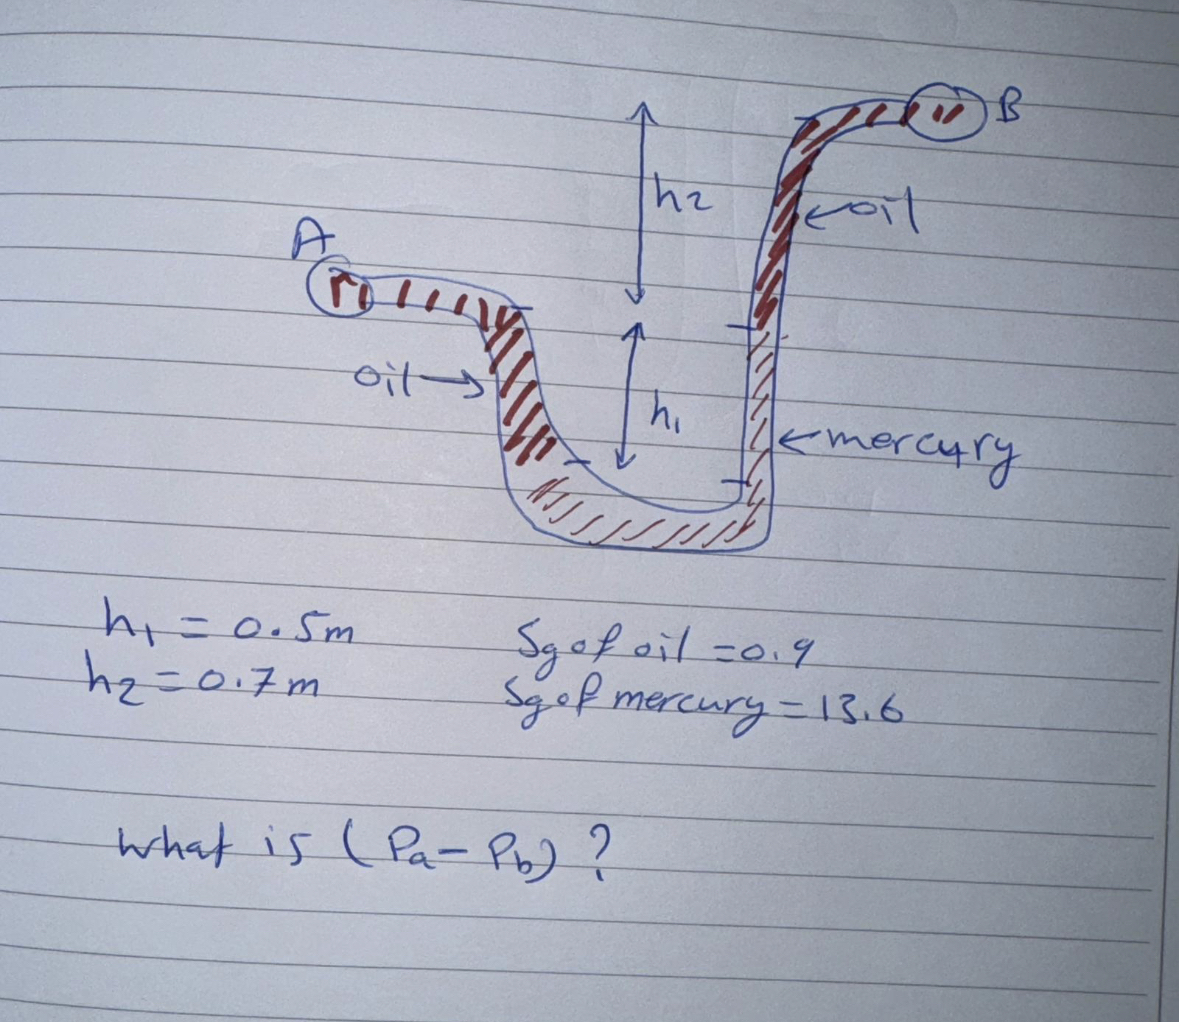 B
h2
oil
A
oil
h1
mercury
h1 = 0.5m
h2 = 0.7m
Sg of oil = 0.9
Sg of mercury = 13.6
What is (Pa - Pb) ?